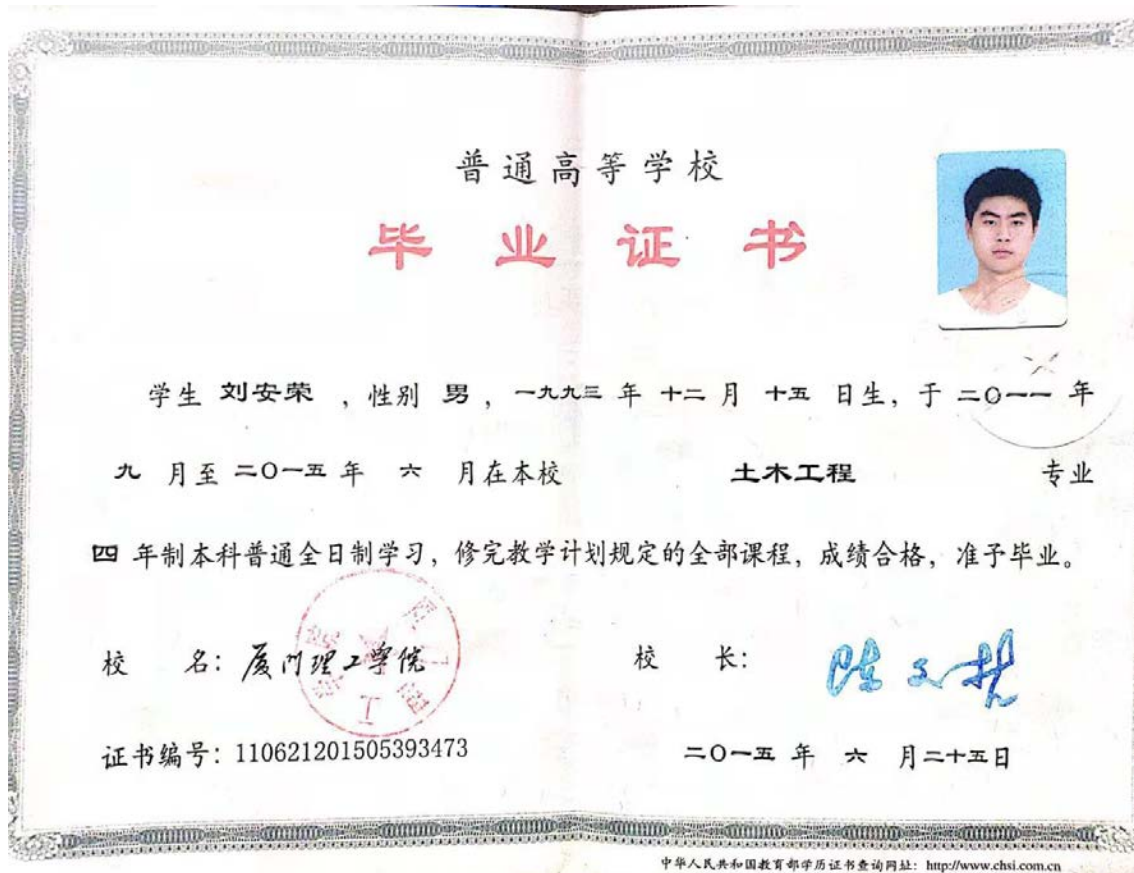 普通高等学校
毕业证书
学生 刘安荣 ，性别 男 ，一九九三 年 十二 月 十五 日生，于 二〇一一 年
九 月至 二〇一五 年 六 月在本校 土木工程 专业
四 年制本科普通全日制学习，修完教学计划规定的全部课程，成绩合格，准予毕业。
校 名：厦门理工学院 校 长：
证书编号：110621201505393473 二〇一五 年 六 月二十五日
中华人民共和国教育部学历证书查询网址：http://www.chsi.com.cn